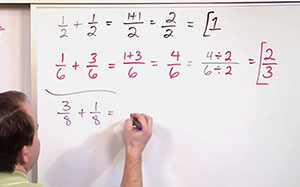 1/2 + 1/2 = 1+1/2 = 2/2 = [1
1/6 + 3/6 = 1+3/6 = 4/6 = 4÷2/6÷2 = [2/3
3/8 + 1/8 =